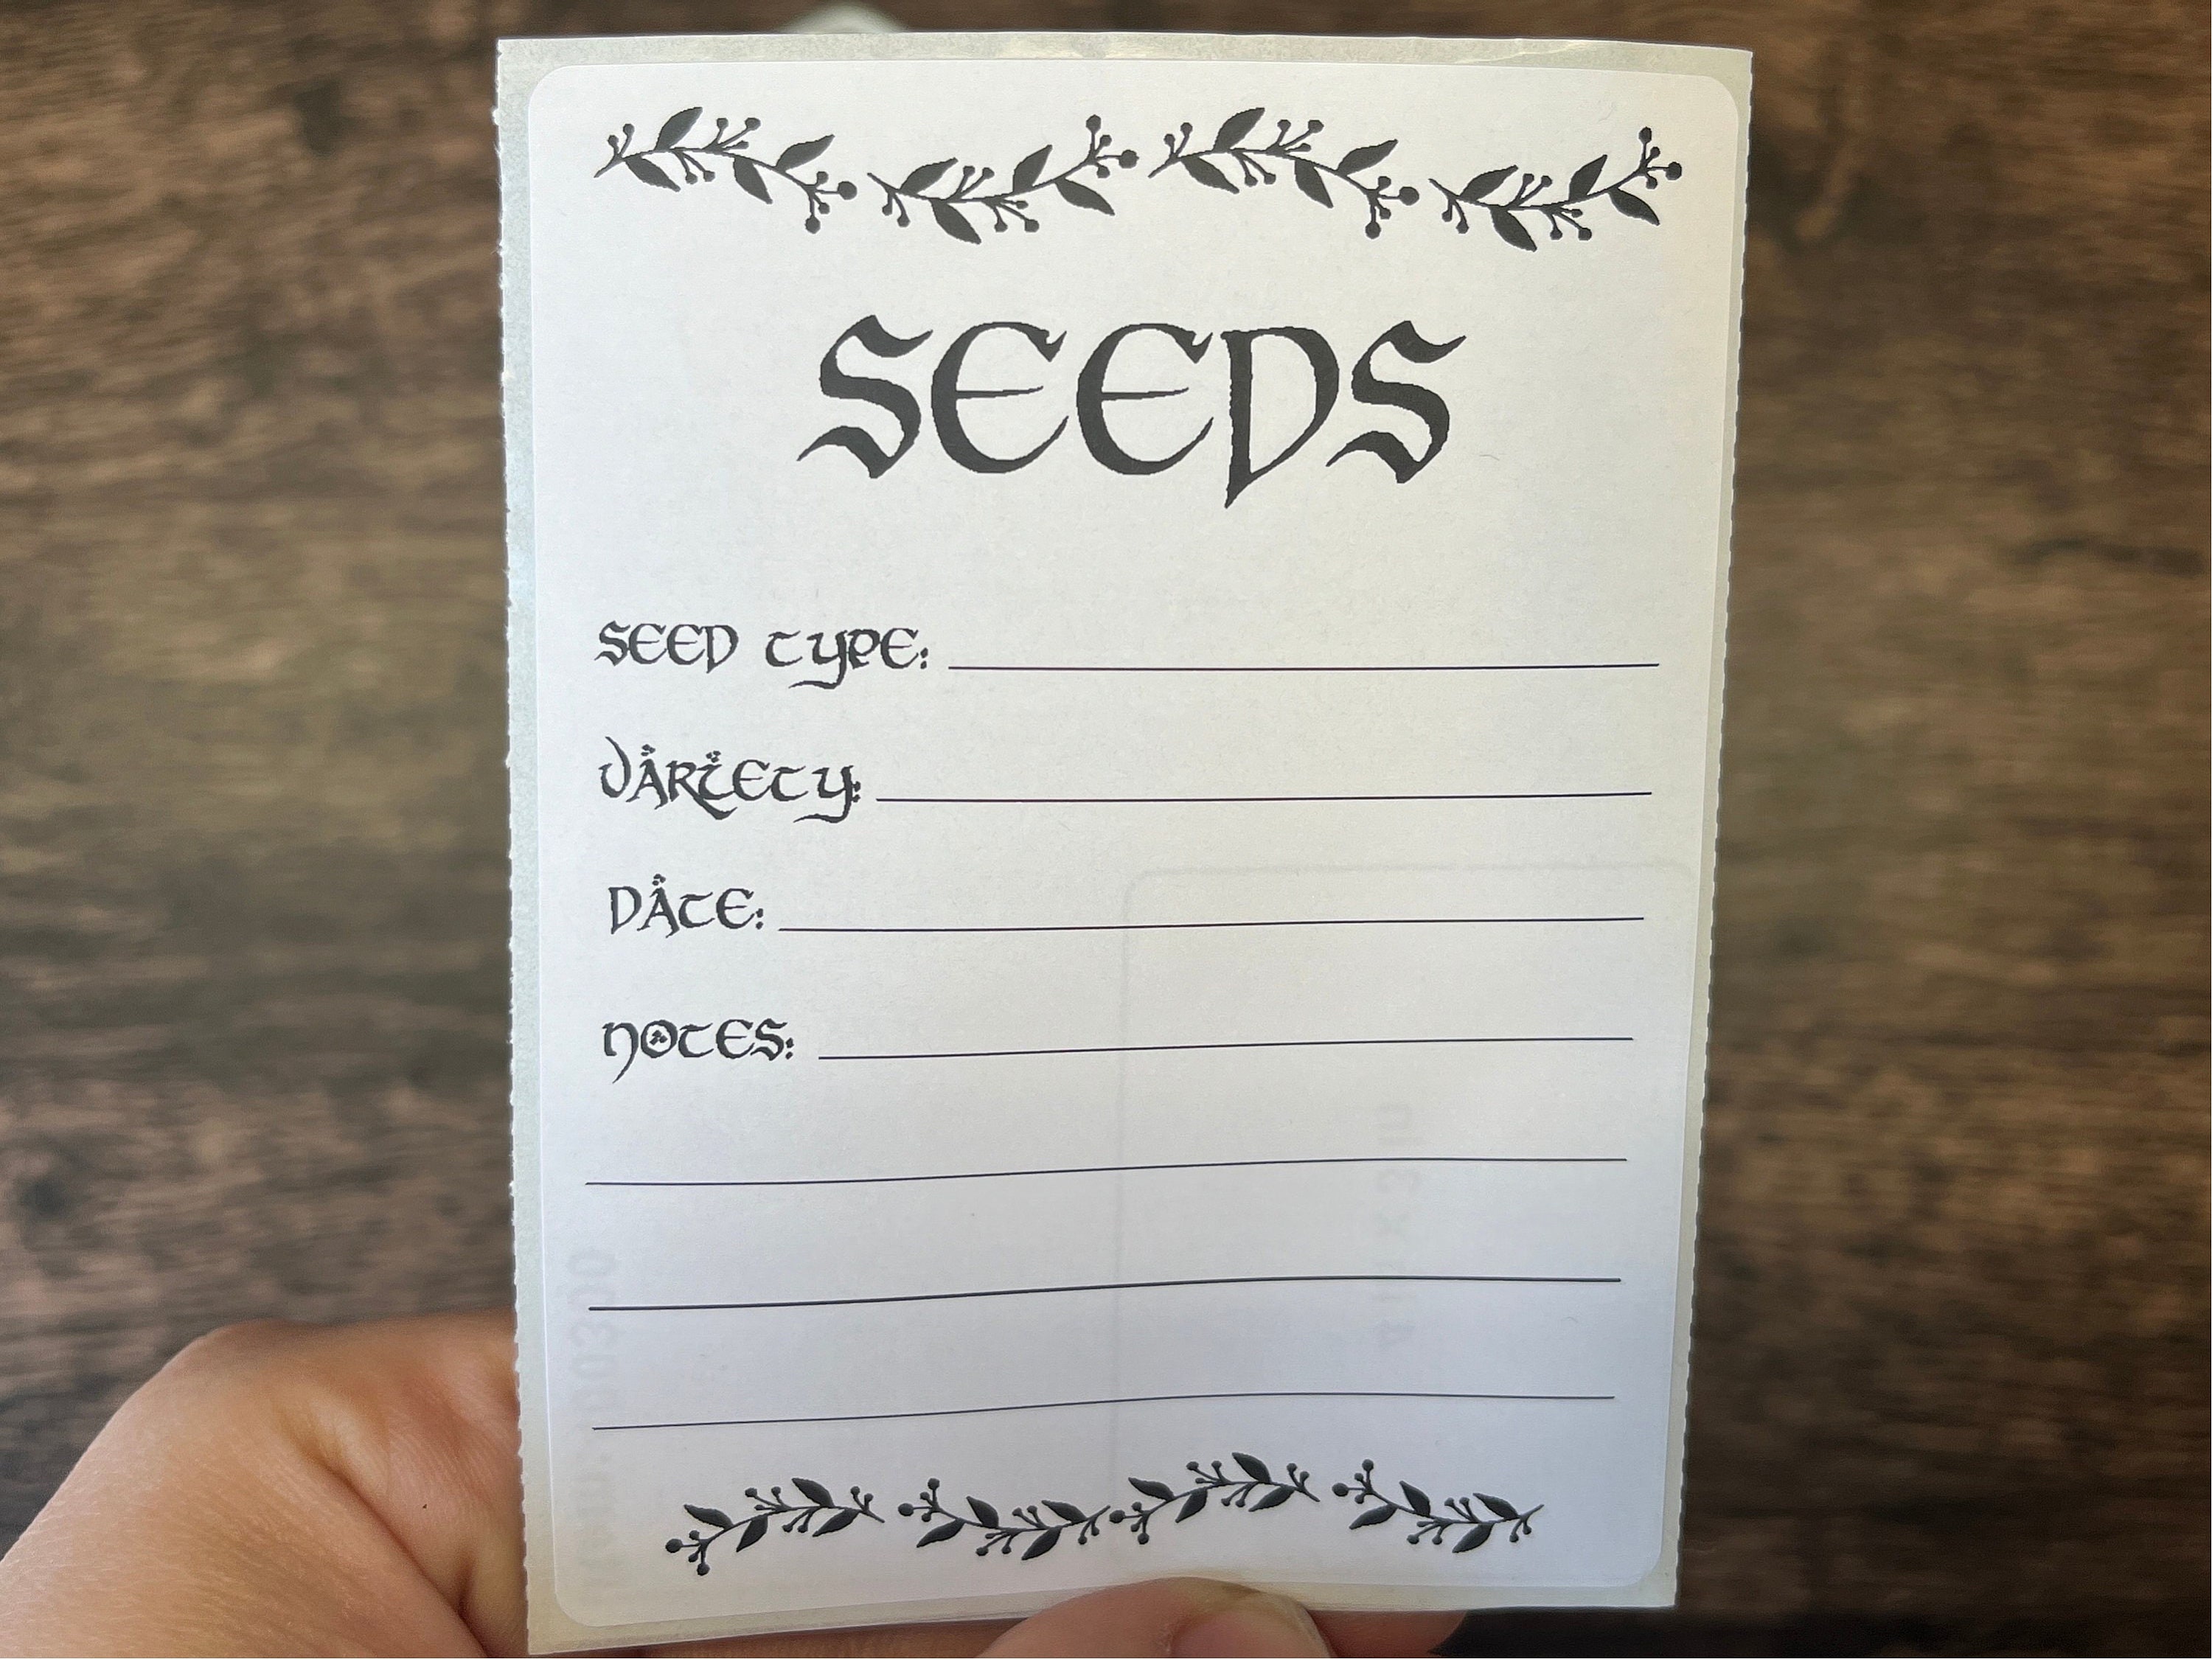 SEEDS
SEED TYPE:
VARIETY:
DATE:
NOTES: